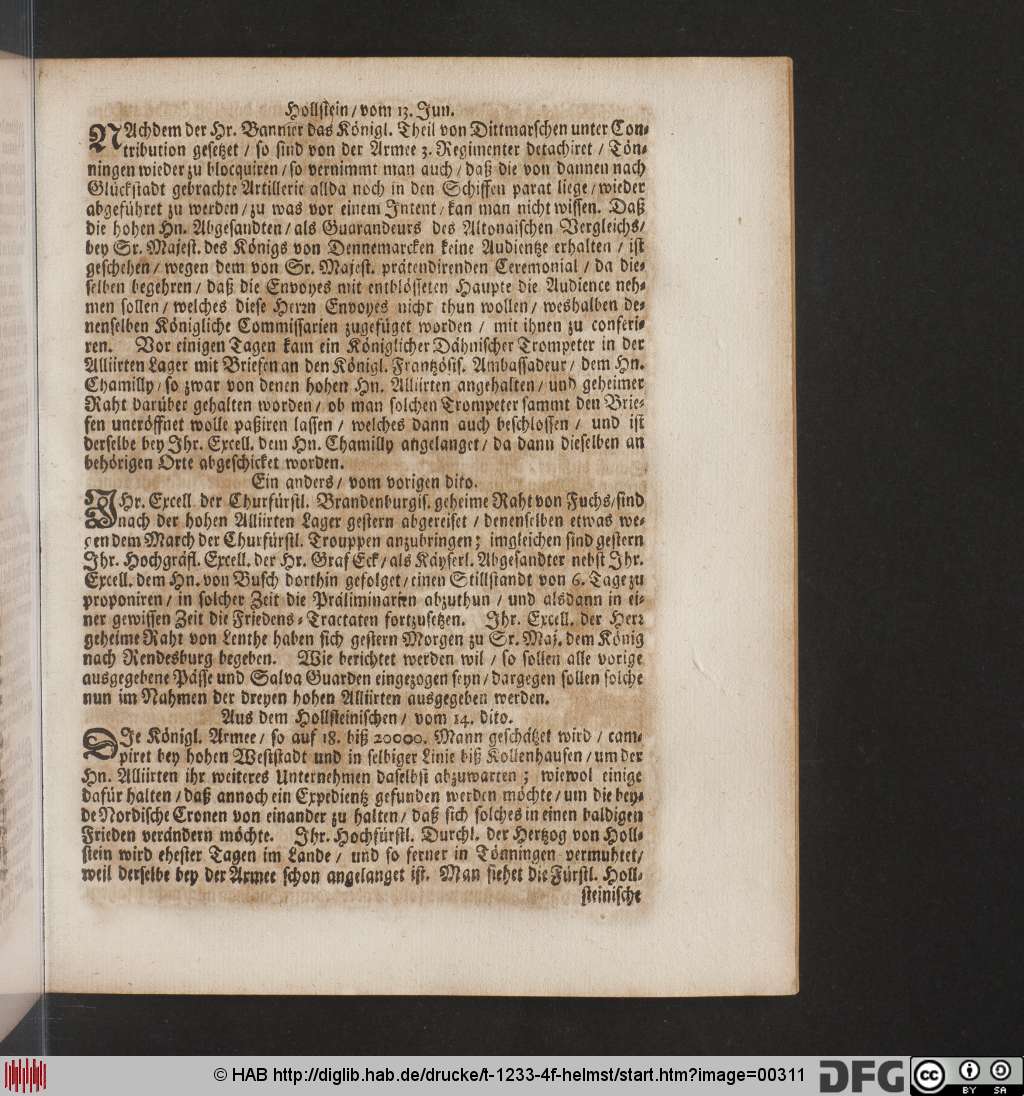 Hollstein / vom 13. Jun.
NAchdem der Hr. Bannier das Königl. Theil von Dittmarschen unter Con-
tribution gesetzet / so sind von der Armee 3. Regimenter detachiret / Tön-
ningen wieder zu blocquiren / so vernimmt man auch / daß die von dannen nach
Glückstadt gebrachte Artillerie allda noch in den Schiffen parat liege / wieder
abgeführet zu werden / zu was vor einem Intent / kan man nicht wissen. Daß
die hohen Hn. Abgesandten / als Guarandeurs des Altonaischen Vergleichs /
bey Sr. Majest. des Königs von Dennemarcken keine Audientze erhalten / ist
geschehen / wegen dem von Sr. Majest. prätendirenden Ceremonial / da die-
selben begehren / daß die Envoyes mit entblösseten Haupte die Audience neh-
men sollen / welches diese Herrn Envoyes nicht thun wollen / weshalben de-
nenselben Königliche Commissarien zugefüget worden / mit ihnen zu conferi-
ren. Vor einigen Tagen kam ein Königlicher Dähnischer Trompeter in der
Alliirten Lager mit Briefen an den Königl. Frantzösis. Ambassadeur / dem Hn.
Chamilly / so zwar von denen hohen Hn. Alliirten angehalten / und geheimer
Raht darüber gehalten worden / ob man solchen Trompeter sammt den Brie-
fen uneröffnet wolle paßiren lassen / welches dann auch beschlossen / und ist
derselbe bey Ihr. Excell. dem Hn. Chamilly angelanget / da dann dieselben an
behörigen Orte abgeschicket worden.
Ein anders / vom vorigen dito.
IHr. Excell der Churfürstl. Brandenburgis. geheime Raht von Fuchs / sind
nach der hohen Alliirten Lager gestern abgereiset / denenselben etwas we-
gen dem March der Churfürstl. Trouppen anzubringen; imgleichen sind gestern
Ihr. Hochgräfl. Excell. der Hr. Graf Eck / als Käyserl. Abgesandter nebst Ihr.
Excell. dem Hn. von Busch dorthin gefolget / einen Stillstandt von 6. Tage zu
proponiren / in solcher Zeit die Präliminarien abzuthun / und alsdann in ei-
ner gewissen Zeit die Friedens-Tractaten fortzusetzen. Ihr. Excell. der Herr
geheime Raht von Lenthe haben sich gestern Morgen zu Sr. Maj. dem König
nach Rendesburg begeben. Wie berichtet werden wil / so sollen alle vorige
ausgegebene Pässe und Salva Guarden eingezogen seyn / dargegen sollen solche
nun im Nahmen der dreyen hohen Alliirten ausgegeben werden.
Aus dem Hollsteinischen / vom 14. dito.
DIe Königl. Armee / so auf 18. biß 20000. Mann geschätzet wird / cam-
piret bey hohen Weststadt und in selbiger Linie biß Kollenhausen / um der
Hn. Alliirten ihr weiteres Unternehmen daselbst abzuwarten; wiewol einige
dafür halten / daß annoch ein Expedientz gefunden werden möchte / um die bey-
de Nordische Cronen von einander zu halten / daß sich solches in einen baldigen
Frieden verändern möchte. Ihr. Hochfürstl. Durchl. der Hertzog von Holl-
stein wird ehester Tagen im Lande / und so ferner in Tönningen vermuhtet /
weil derselbe bey der Armee schon angelanget ist. Man siehet die Fürstl. Holl-
steinische
© HAB http://diglib.hab.de/drucke/t-1233-4f-helmst/start.htm?image=00311
DFG
cc BY SA